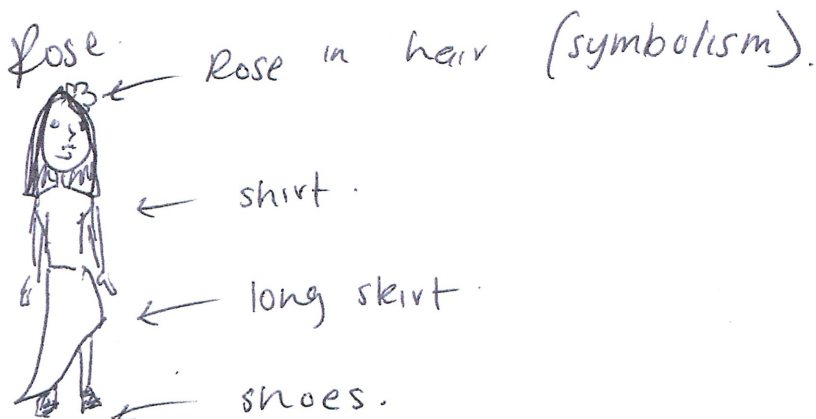 Rose.
Rose in hair (symbolism).
shirt.
long skirt.
shoes.